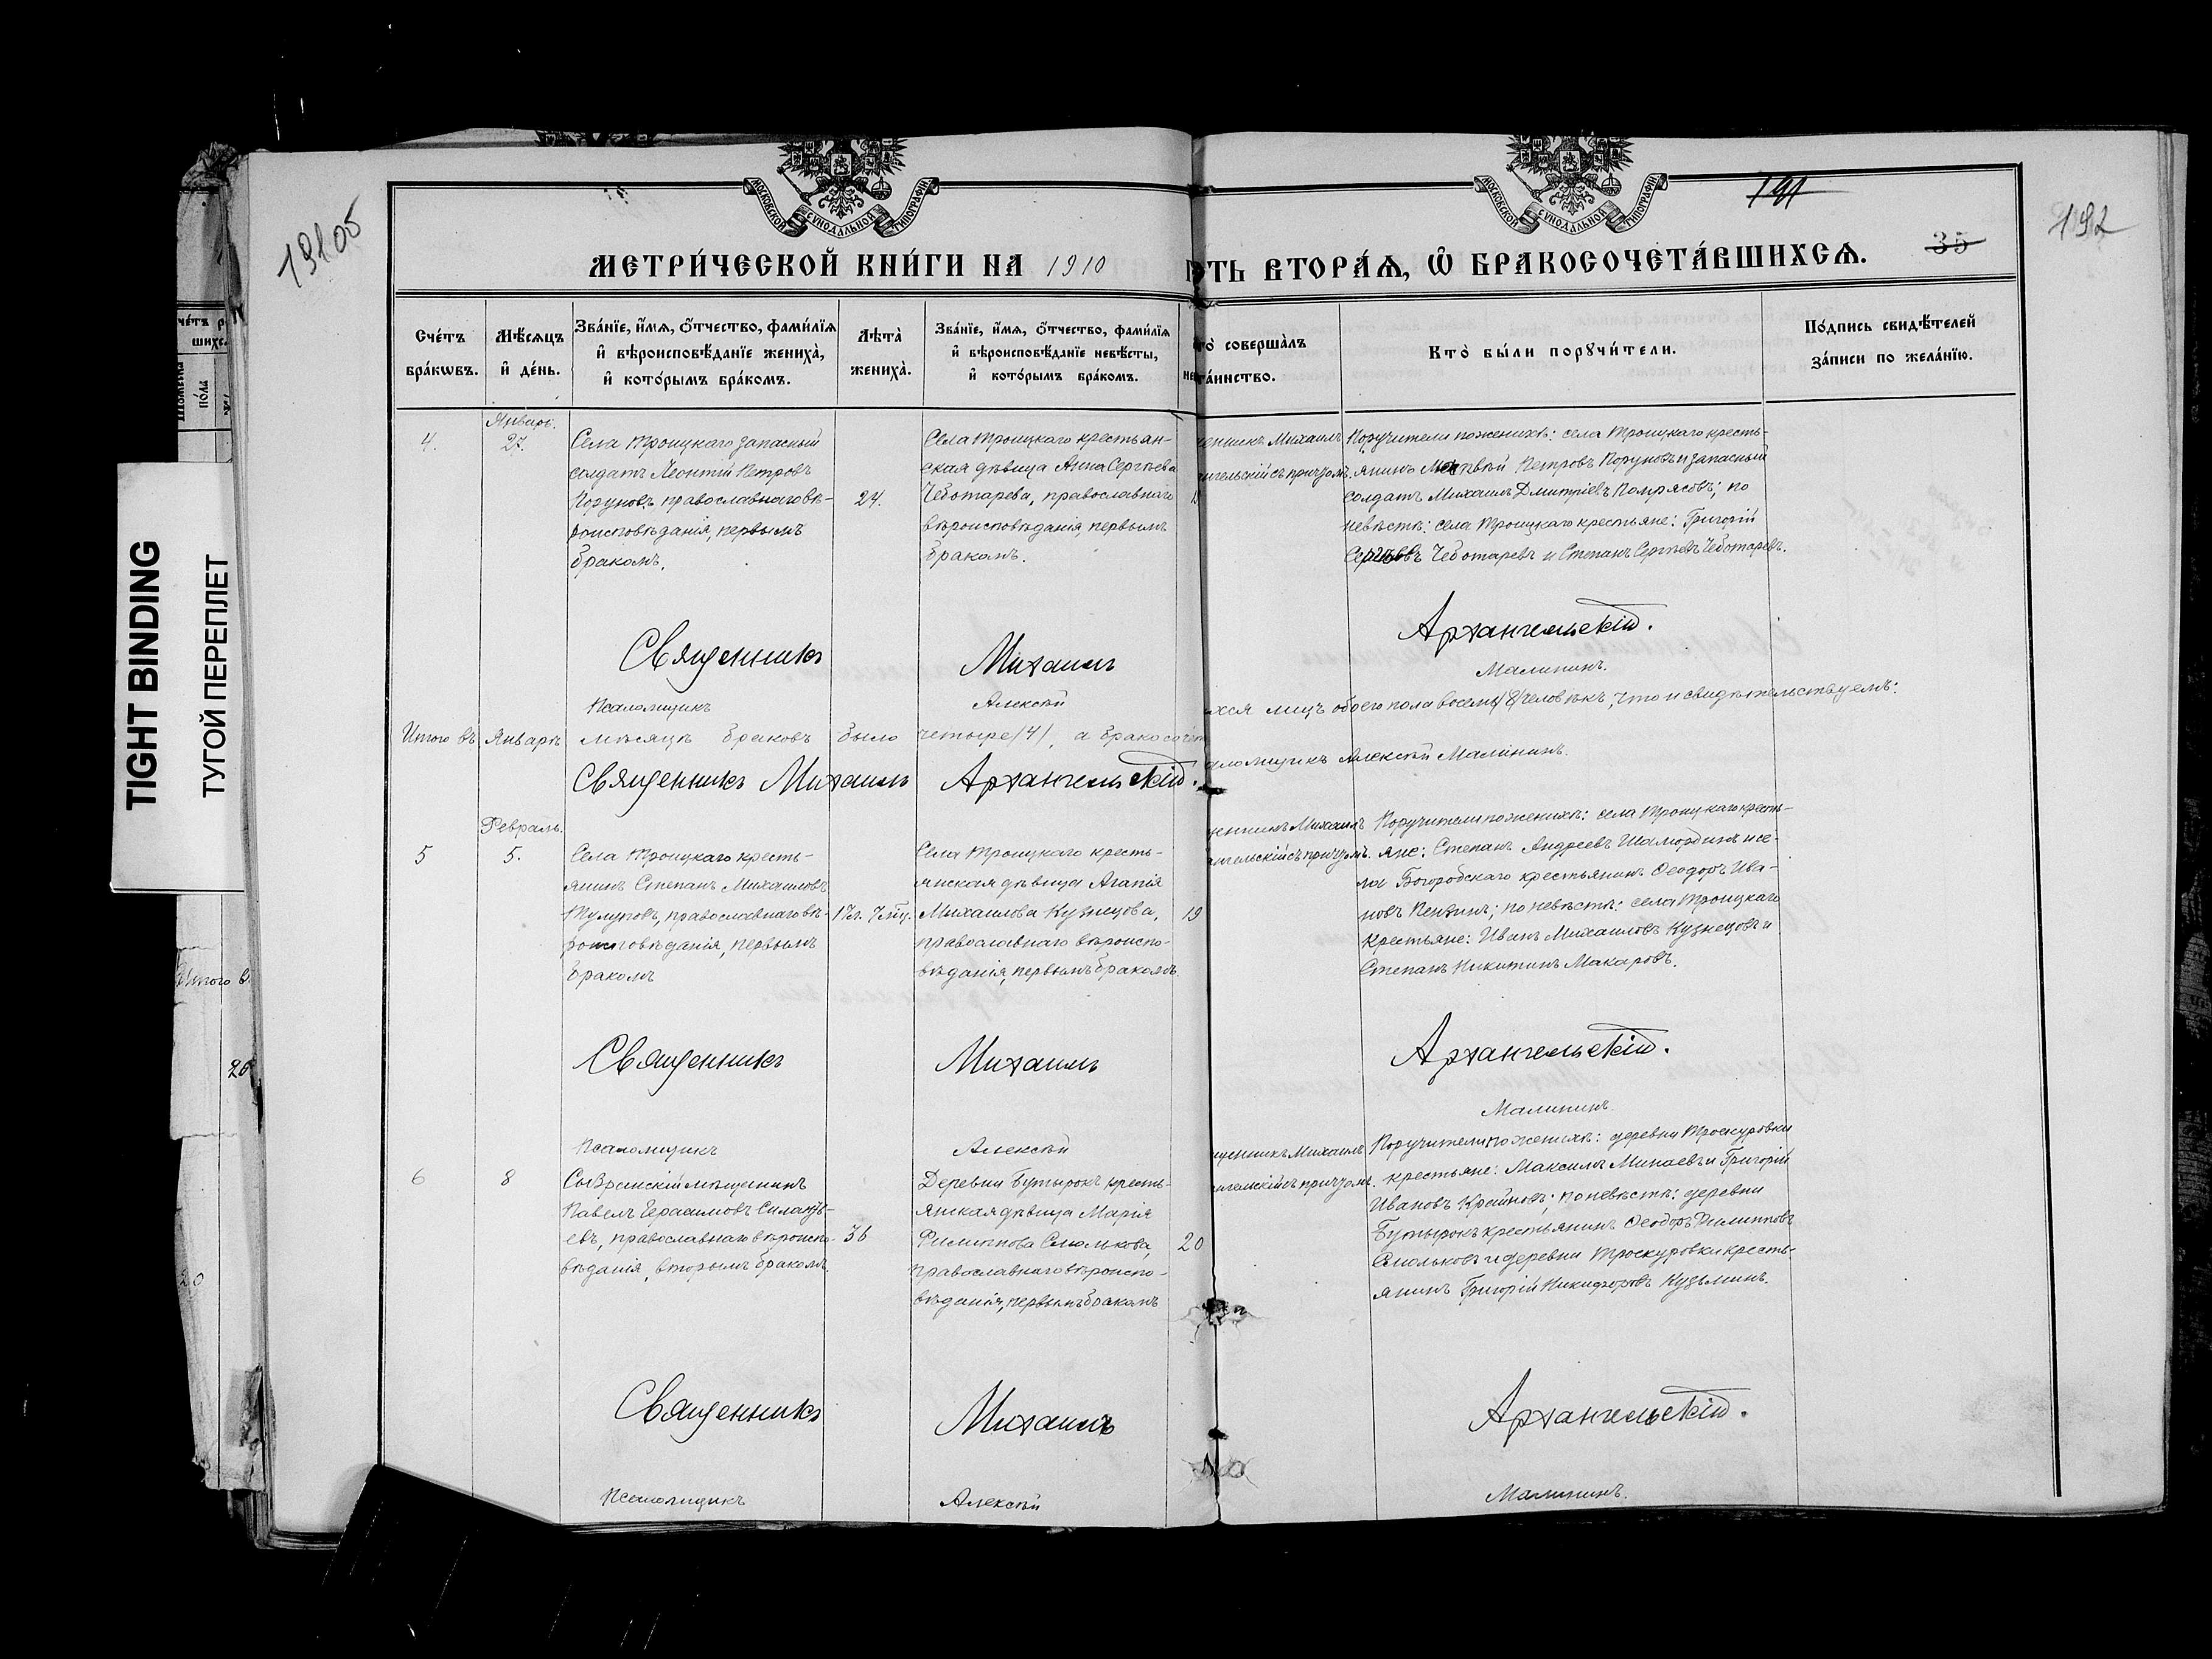 TIGHT BINDING
ТУГОЙ ПЕРЕПЛЕТ
191об
МОСКОВСКОЙ СѴНОДАЛЬНОЙ ТИПОГРАФІИ
МОСКОВСКОЙ СѴНОДАЛЬНОЙ ТИПОГРАФІИ
191
192
35
МЕТРИ́ЧЕСКОЙ КНИ́ГИ НА 1910
СТЬ ВТОРА́Ѧ, Ѽ БРАКОСОЧЕТА́ВШИХСѦ.
Сче́тъ бра́кѡвъ.
Мѣ́сѧцъ и҆ де́нь.
Зва́нїе, и҆́мѧ, ѻ҆́тчество, фами́лїѧ
и҆ вѣроисповѣ́данїе жениха̀,
и҆ кото́рымъ бра́комъ.
Лѣ́та̀ жениха̀.
Зва́нїе, и҆́мѧ, ѻ҆́тчество, фами́лїѧ
и҆ вѣроисповѣ́данїе невѣ́сты,
и҆ кото́рымъ бра́комъ.
то̀ соверша́лъ
та́инство.
Кто̀ бы́ли порꙋчи́тели.
По́дпись свидѣ́телей
за́писи по жела́нїю.
Январь.
4.
27.
Села Троицкаго запасный
солдатъ Леонтій Петровъ
Поруновъ, православнаго вѣ-
роисповѣданія, первымъ
бракомъ.
24.
Села Троицкаго крестьян-
ская дѣвица Анна Сергѣева
Чеботарева, православнаго
вѣроисповѣданія, первымъ
бракомъ.
щенникъ Михаилъ
ангельскій съ причтомъ.
Поручители по женихѣ: села Троицкаго кресть-
янинъ Петровъ Поруновъ и запасный
солдатъ Михаилъ Дмитріевъ по
невѣстѣ: села Троицкаго крестьяне: Григорій
Сергѣевъ Чеботаревъ и Степанъ Сергѣевъ Чеботаревъ.
Священникъ Михаилъ Архангельскій.
Псаломщикъ Алексѣй Малининъ.
Итого въ Январѣ мѣсяцѣ браковъ было четыре /4/, а бракосочет
хся лицъ обоего пола восемь /8/ человѣкъ, что и свидѣтельствуемъ:
Священникъ Михаилъ Архангельскій.
аломщикъ Алексѣй Малининъ.
Февраль.
5
5.
Села Троицкаго кресть-
янинъ Степанъ Михаиловъ
Тулуповъ, православнаго вѣ-
роисповѣданія, первымъ
бракомъ
17 л. 7 мц.
Села Троицкаго кресть-
янская дѣвица Агапія
Михаилова Кузнецова,
православнаго вѣроиспо-
вѣданія, первымъ бракомъ.
19
щенникъ Михаилъ
ангельскій съ причтомъ.
Поручители по женихѣ: села Троицкаго кресть-
яне: Степанъ Андреевъ Шамординъ и се-
ла Богородскаго крестьянинъ Ѳеодоръ Ива-
новъ по невѣстѣ: села Троицкаго
крестьяне: Иванъ Михаиловъ Кузнецовъ и
Степанъ Никитинъ Макаровъ.
Священникъ Михаилъ Архангельскій.
Псаломщикъ Алексѣй Малининъ
6
8
мѣщанинъ
Павелъ Герасимовъ Силантье-
евъ, православнаго вѣроиспо-
вѣданія, вторымъ бракомъ.
36
Деревни Бутырокъ кресть-
янская дѣвица Марія
Филиппова Смолькова,
православнаго вѣроиспо-
вѣданія, первымъ бракомъ
20
щенникъ Михаилъ
ангельскій съ причтомъ.
Поручители по женихѣ: деревни Троекуровки
крестьяне: Максимъ Минаевъ и Григорій
Ивановъ Крайновъ; по невѣстѣ: деревни
Бутырокъ крестьянинъ Ѳеодоръ Филипповъ
Смольковъ и деревни Троекуровки кресть-
янинъ Григорій Никифоровъ Кузьминъ.
Священникъ Михаилъ Архангельскій.
Псаломщикъ Алексѣй Малининъ.